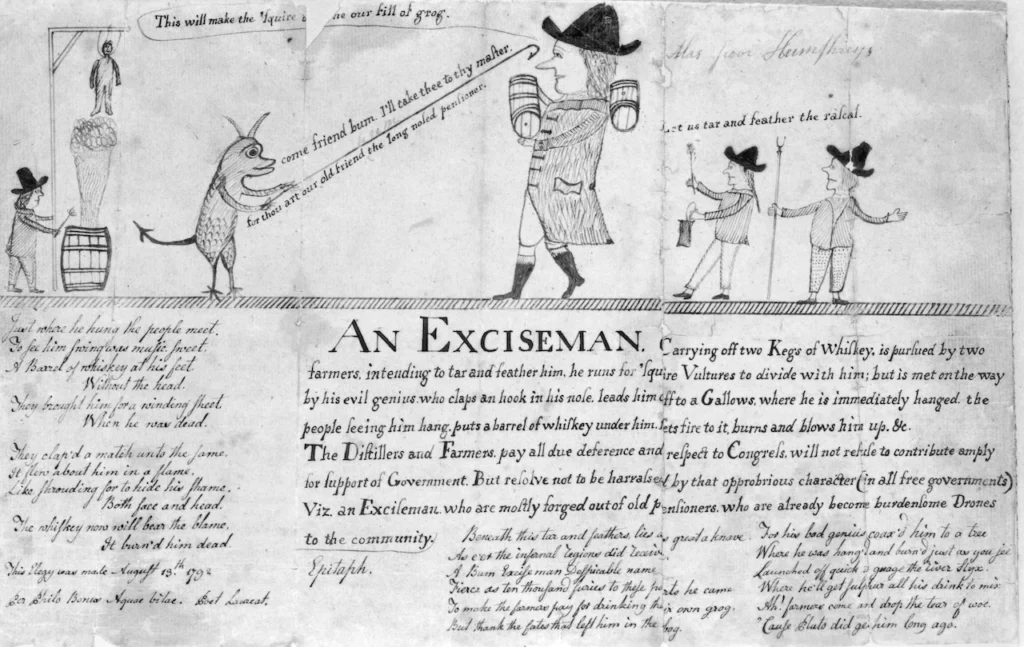 This will make the 'Squire & me our fill of grog.
come friend bum, I'll take thee to thy master.
for thou art our old friend the long nosed pensioner.
Alas poor Humphreys
Let us tar and feather the rascal.
Just where he hung the people meet.
To see him swing was music sweet.
A Barrel of whiskey at his feet.
Without the head.
They brought him for a winding sheet.
When he was dead.
They clap'd a match unto the same.
It flew about him in a flame.
Like shrouding for to hide his shame.
Both face and head.
The whiskey now will bear the blame.
It burn'd him dead
This Elegy was made August 13.th 1792
Per Philo Bonus Aquae vitae. Poet Laureat.
AN EXCISEMAN,
Carrying off two Kegs of Whiskey, is pursued by two
farmers, intending to tar and feather him, he runs for 'Squire Vultures to divide with him; but is met on the way
by his evil genius who claps an hook in his nose, leads him off to a Gallows, where he is immediately hanged. the
people seeing him hang, puts a barrel of whiskey under him, sets fire to it, burns and blows him up. &c.
The Distillers and Farmers, pay all due deference and respect to Congress, will not refuse to contribute amply
for support of Government. But resolve not to be harrassed by that opprobrious character (in all free governments)
Viz. an Exciseman, who are mostly forged out of old pensioners, who are already become burdensome Drones
to the community.
Epitaph.
Beneath this tar and feathers, lies as great a knave.
As e'er the infernal regions did receive.
A Bum Exciseman despicable name
Fierce as ten thousand furies to these parts he came
To make the farmers pay for drinking their own grog.
But thank the fates that left him in the bog.
For his bad genius coax'd him to a tree
Where he was hang'd and burn'd just as you see
Launched off quick to guage the river Styx.
Where he'll get sulphur all his drink to mix
Ah! farmers come and drop the tear of woe.
'Cause Pluto did get him long ago.